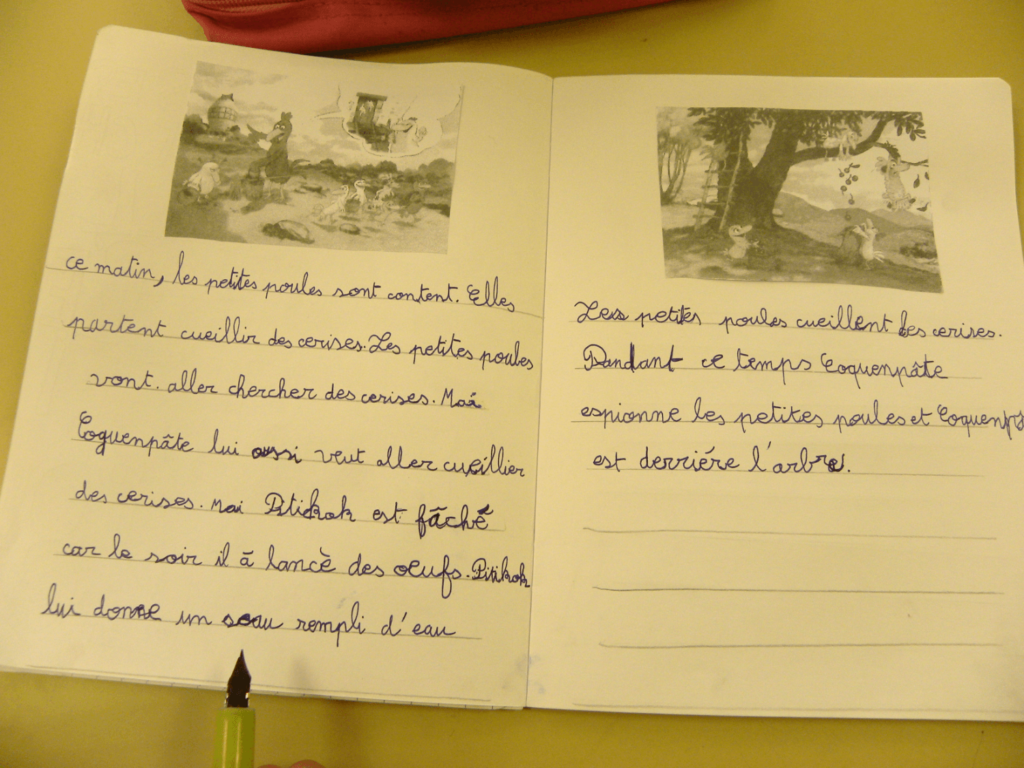 ce matin, les petites poules sont content. Elles
partent cueillir des cerises. Les petites poules
vont. aller chercher des cerises. Mai
Coquenpâte lui aussi veut aller cueillier
des cerises. Mai Pitikok est fâché
car le soir il à lancè des oeufs. Pitikok
lui donne un seau rempli d'eau
Les petites poules cueillent des cerises.
Pandant ce temps Coquenpâte
espionne les petites poules et
est derriére l'arbre.